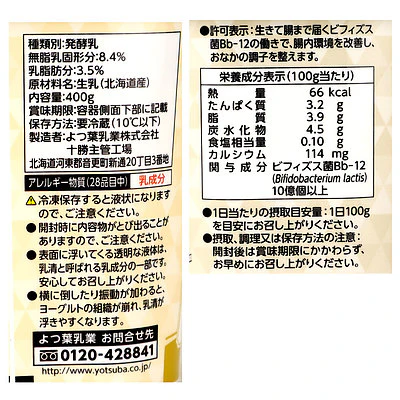 種類別:発酵乳
無脂乳固形分:8.4%
乳脂肪分:3.5%
原材料名:生乳(北海道産)
内容量:400g
賞味期限:容器側面下部に記載
保存方法:要冷蔵(10℃以下)
製造者:よつ葉乳業株式会社
十勝主管工場
北海道河東郡音更町新通20丁目3番地
アレルギー物質(28品目中) 乳成分
⚠冷凍保存すると液状になりますので、ご注意ください。
●開封時に内容物がとび出ることがありますので、ご注意ください。
●表面に浮いてくる透明な液体は、
乳清と呼ばれる乳成分の一部です。
安心してお召し上がりください。
●横に倒したり振動が加わると、
ヨーグルトの組織が崩れ、乳清が
浮きやすくなります。
よつ葉乳業 お問合せ先
0120-428841
http://www.yotsuba.co.jp/
●許可表示:生きて腸まで届くビフィズス
菌Bb-12の働きで、腸内環境を改善し、
おなかの調子を整えます。
栄養成分表示(100g当たり)
熱量 66 kcal
たんぱく質 3.2 g
脂質 3.9 g
炭水化物 4.5 g
食塩相当量 0.10 g
カルシウム 114 mg
関与成分 ビフィズス菌Bb-12
(Bifidobacterium lactis)
10億個以上
●1日当たりの摂取目安量:1日100g
を目安にお召し上がりください。
●摂取、調理又は保存方法の注意:
開封後は賞味期限にかかわらず、
お早めにお召し上がりください。